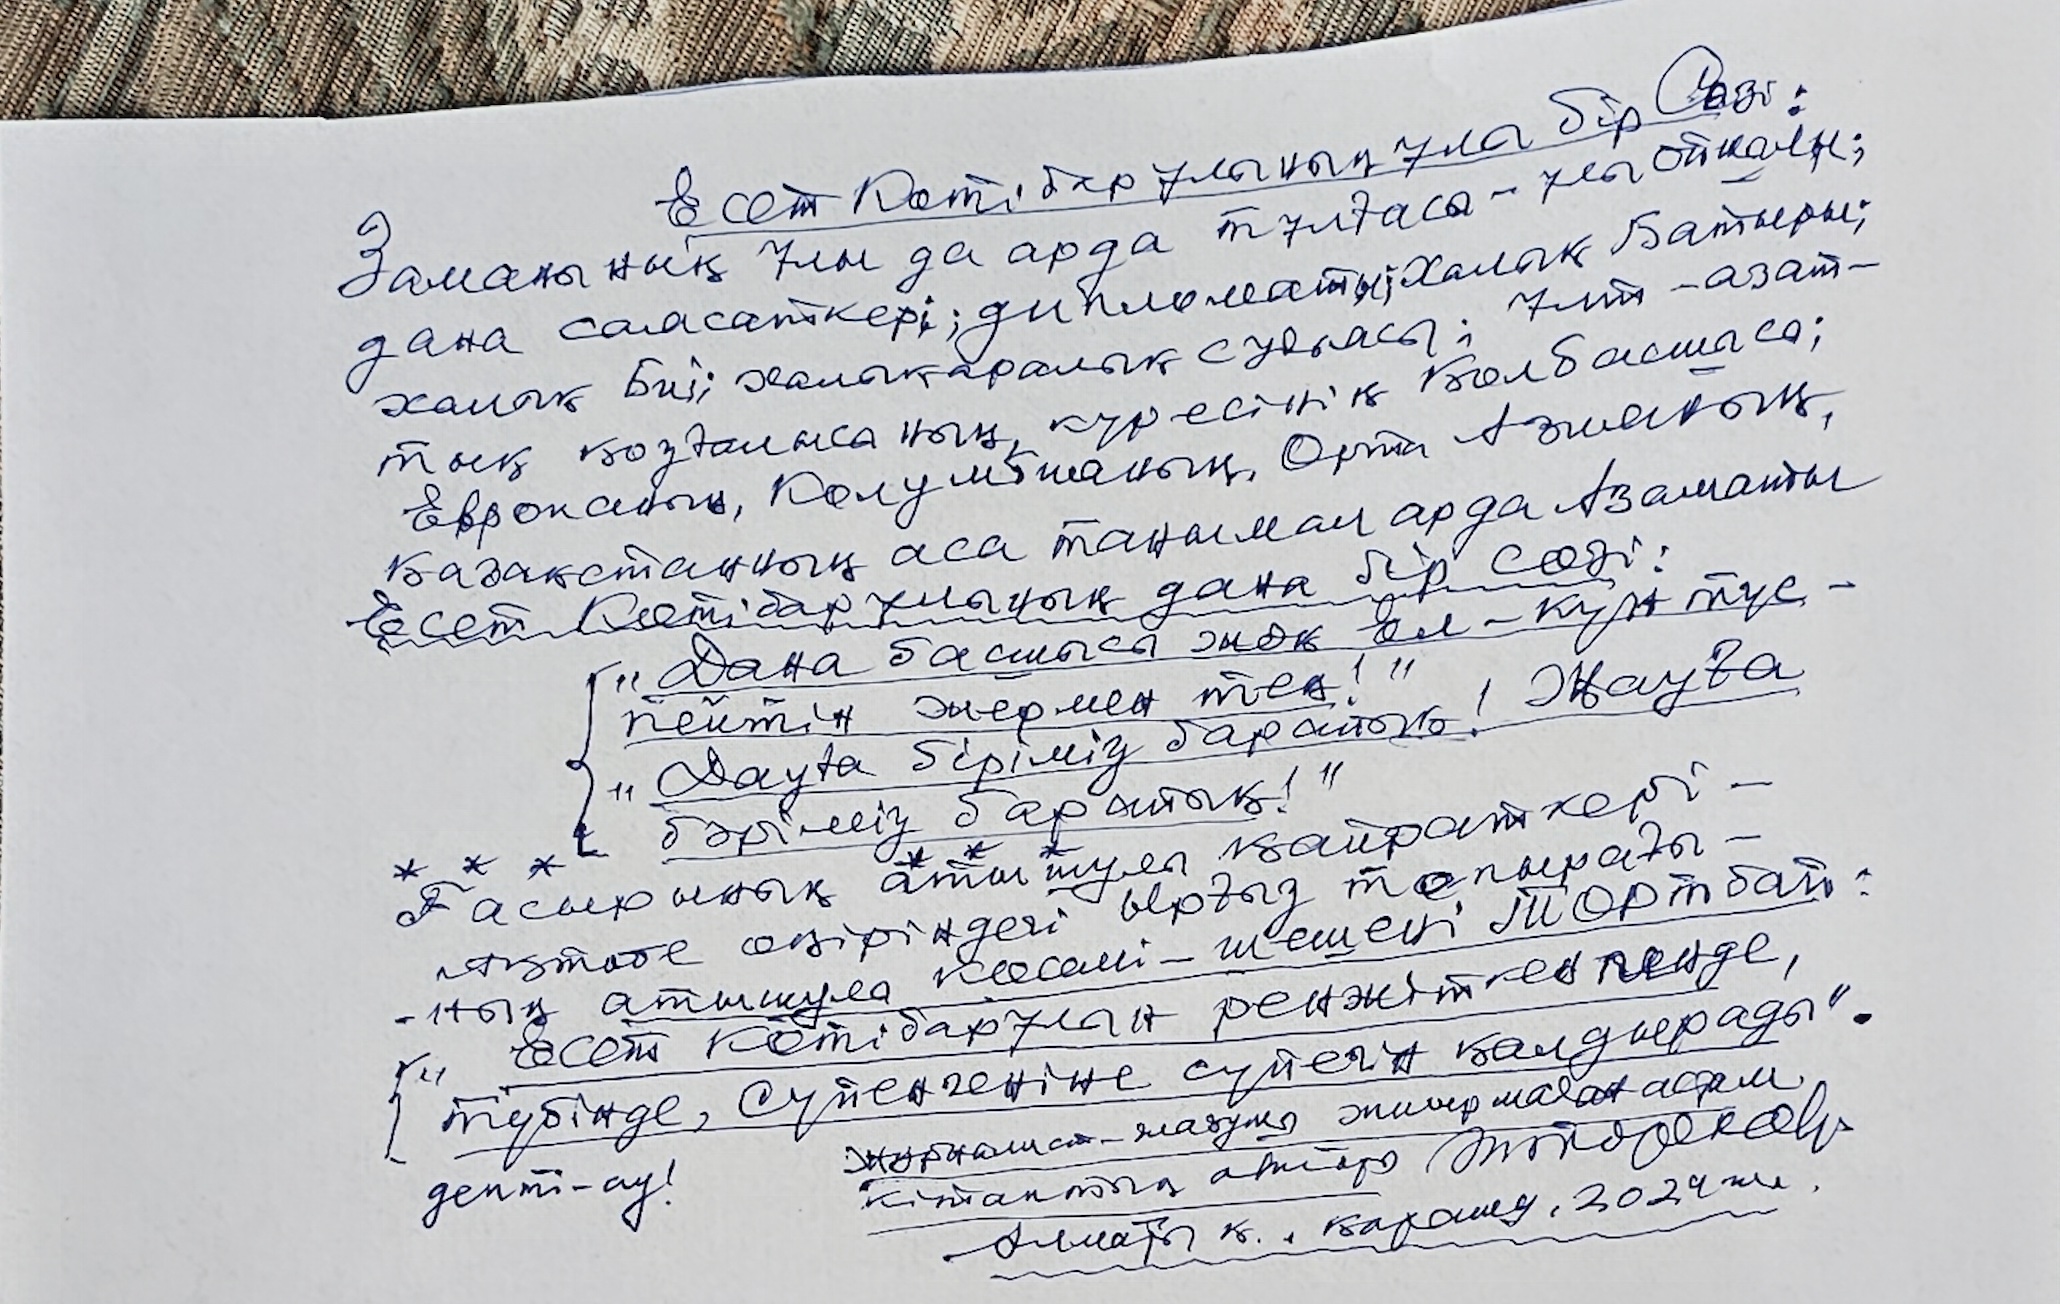 Есет Көтібарұлының ұлы бір Сөзі:
Заманының ұлы да арда тұлғасы – ұлы
дана саясаткері; дипломаты; халық Батыры;
халық Биі; халықаралық судьясы; ұлт-азат-
тық қозғалысының, күресінің Қолбасшысы;
Европаның, Колумбияның, Орта Азияның,
Қазақстанның аса танымал арда Азаматы
Есет Көтібарұлының дана бір сөзі:
"Дана басшысы жоқ Ел – күн түс-
пейтін жермен тең!"
"Дауға біріміз баратық! Жауға
бәріміз баратық!"
* * * * * *
Ғасырының атышулы қайраткері –
Ақтөбе өңіріндегі Ырғыз топырағы-
-ның атышулы көсемі-шешені Төртбай:
"Есет Көтібарұлын ренжіткен пенде,
түбінде, Сүйенгеніне сүйегін қалдырады".
депті-ау!
Журналист-жазушы жиырмадан астам
кітаптың авторы
Алматы қ., қараша, 2024 ж.